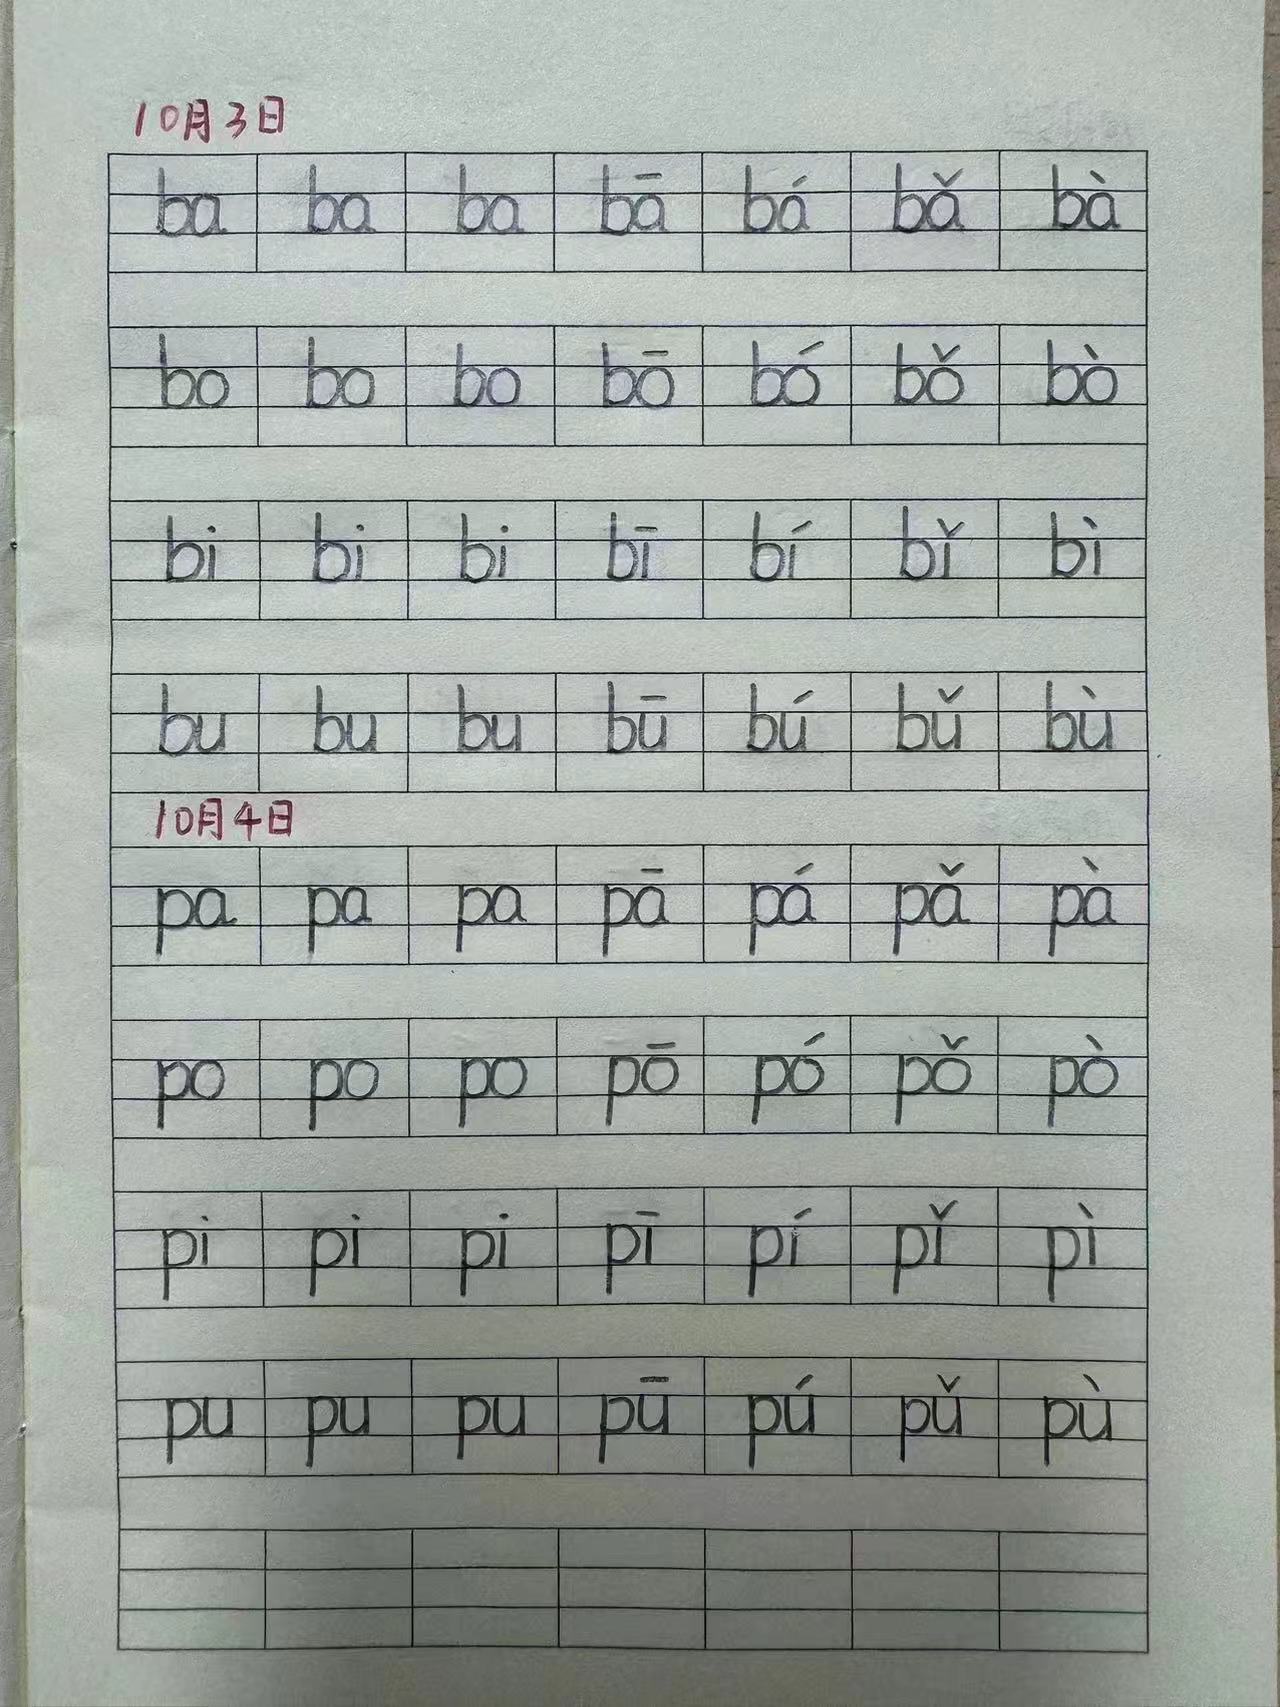 10月3日
ba ba ba bā bá bǎ bà
bo bo bo bō bó bǒ bò
bi bi bi bī bí bǐ bì
bu bu bu bū bú bǔ bù
10月4日
pa pa pa pā pá pǎ pà
po po po pō pó pǒ pò
pi pi pi pī pí pǐ pì
pu pu pu pū pú pǔ pù